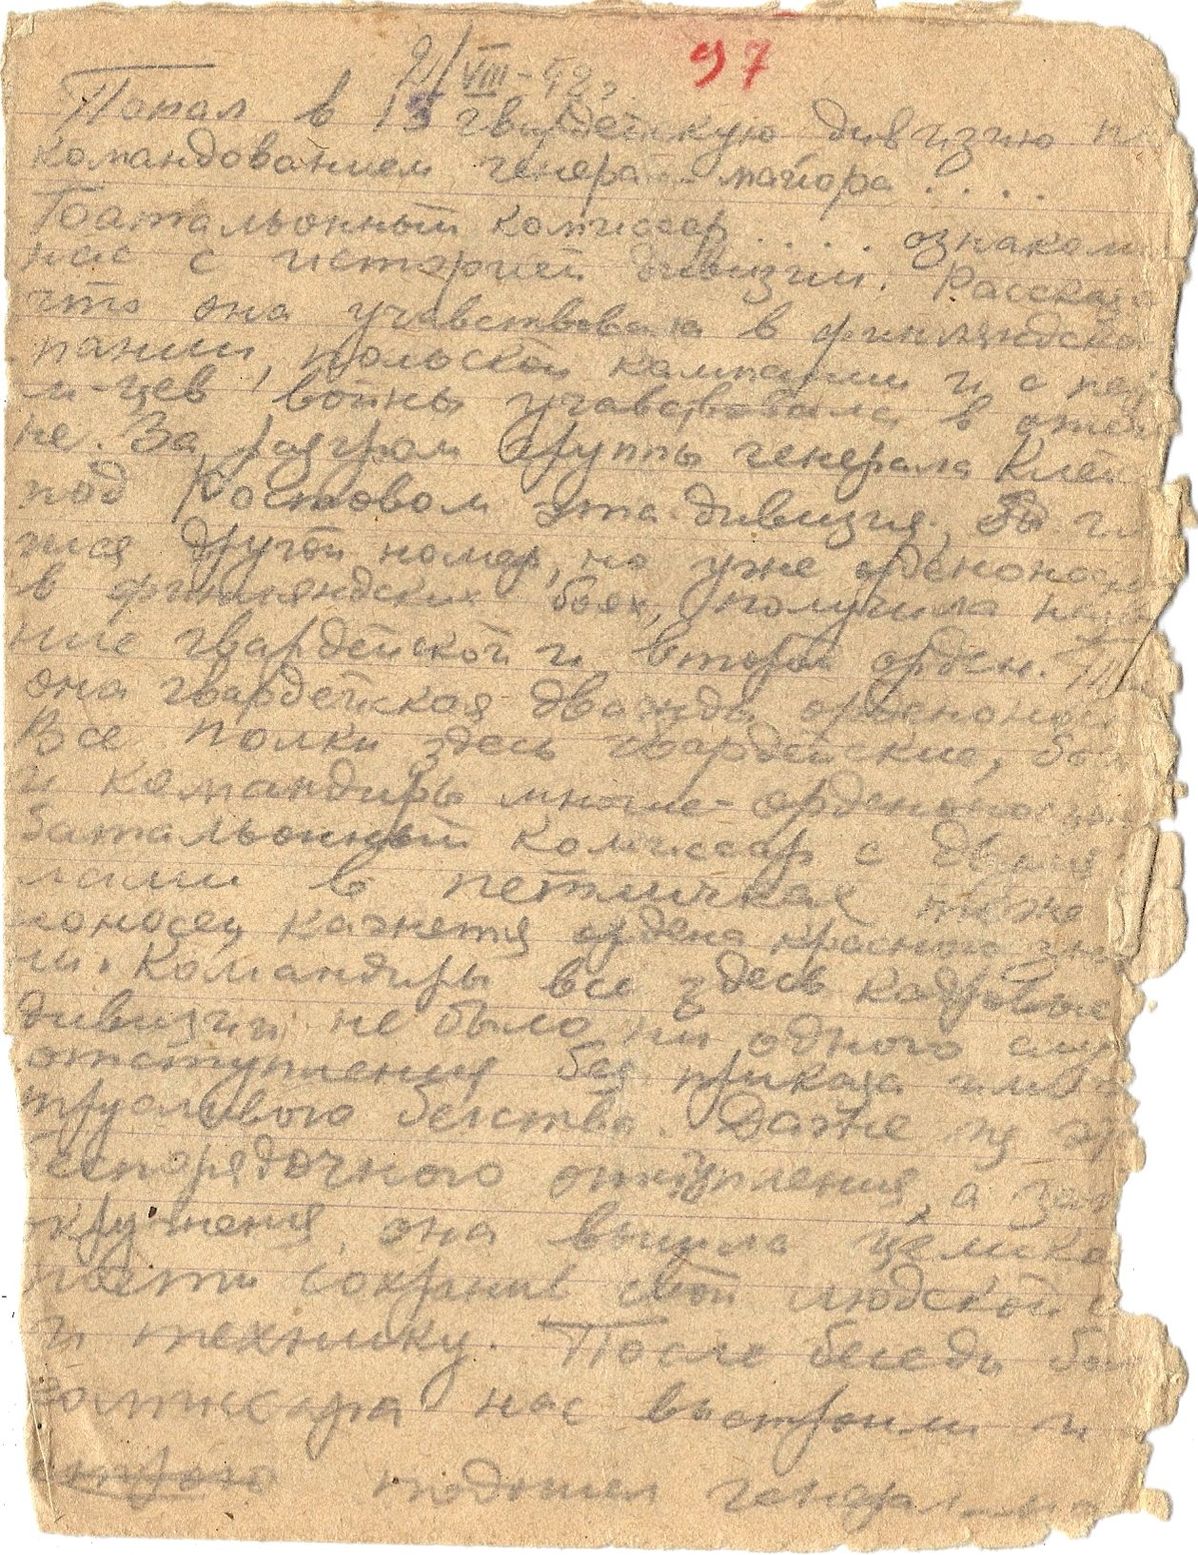 2/VIII-42г.
97
Попал в 13 гвардейскую дивизию п
командованием генерал-майора . . . .
Батальонный комиссар . . . . ознаком
нас с историей дивизии. Рассказ
что она учавствовала в финляндско
пании, польской кампании и с пер
м-цев войны учавствовала в отеч
не. За разгром группы генерала Клей
под Ростовом эта дивизия,
другой номер, но уже орденонос
в финляндских боях, получила
ние гвардейской и второй орден.
она гвардейская дважды орденонос
Все полки здесь гвардейские, бой
и командиры многие - орденонос
Батальонный комиссар с двумя
лами в петличках тоже
ноносец кажется ордена красного зна
ни. Командиры все здесь кадровые
дивизии не было ни одного слу
отступления без приказа или
трусливого бегства. Даже из
беспорядочного отступления, а зат
окружения, она вышла целико
ности сохранив свой людской
и технику. После беседы ба
комиссара нас выстроили и
подошел генерал-м